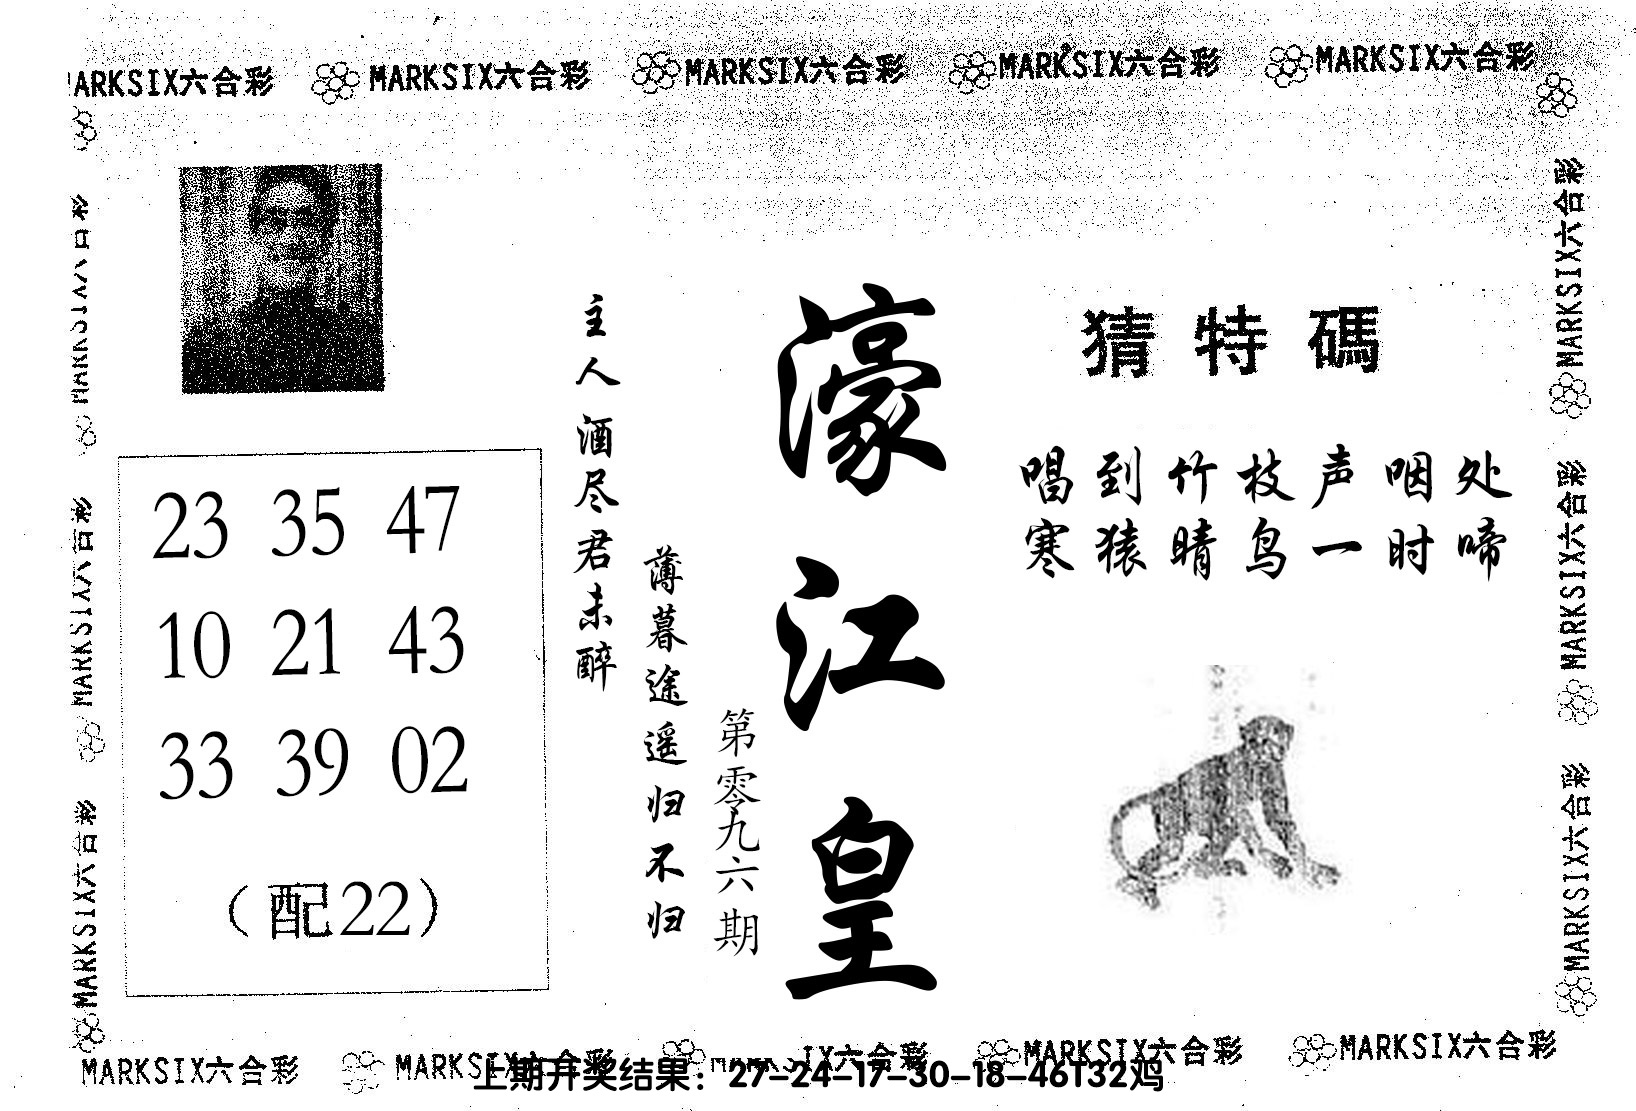 MARKSIX六合彩 MARKSIX六合彩 MARKSIX六合彩 MARKSIX六合彩 MARKSIX六合彩
猜特碼
唱到竹枝声咽处
寒猿晴鸟一时啼
濠江皇
第零九六期
主人酒尽君未醉
薄暮途遥归不归
23 35 47
10 21 43
33 39 02
(配22)
MARKSIX六合彩
MARKSIX六合彩
MARKSIX六合彩
MARKSIX六合彩
MARKSIX六合彩
MARKSIX六合彩
MARKSIX六合彩 MARKSIX六合彩 MARKSIX六合彩 MARKSIX六合彩 MARKSIX六合彩
上期开奖结果：27-24-17-30-18-46T32鸡